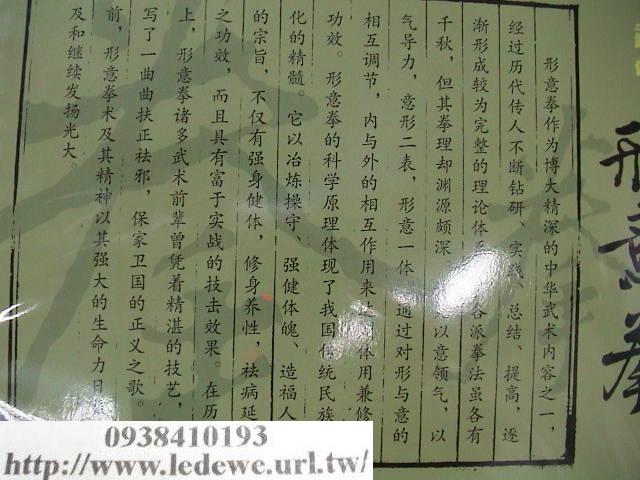 形意拳
形意拳作为博大精深的中华武术内容之一，
经过历代传人不断钻研、实践、总结、提高，逐
渐形成较为完整的理论体系 各派拳法虽各有
千秋，但其拳理却渊源颇深 以意领气，以
气导力，意形二表，形意一体 通过对形与意的
相互调节，内与外的相互作用来达 体用兼修
功效。形意拳的科学原理体现了我国传统民族
化的精髓。它以冶炼操守、强健体魄、造福人
的宗旨，不仅有强身健体，修身养性，祛病延
之功效，而且具有富于实战的技击效果。在历
上，形意拳诸多武术前辈曾凭着精湛的技艺，
写了一曲曲扶正祛邪，保家卫国的正义之歌。
前，形意拳术及其精神以其强大的生命力日
及和继续发扬光大。
0938410193
http://www.ledewe.url.tw/